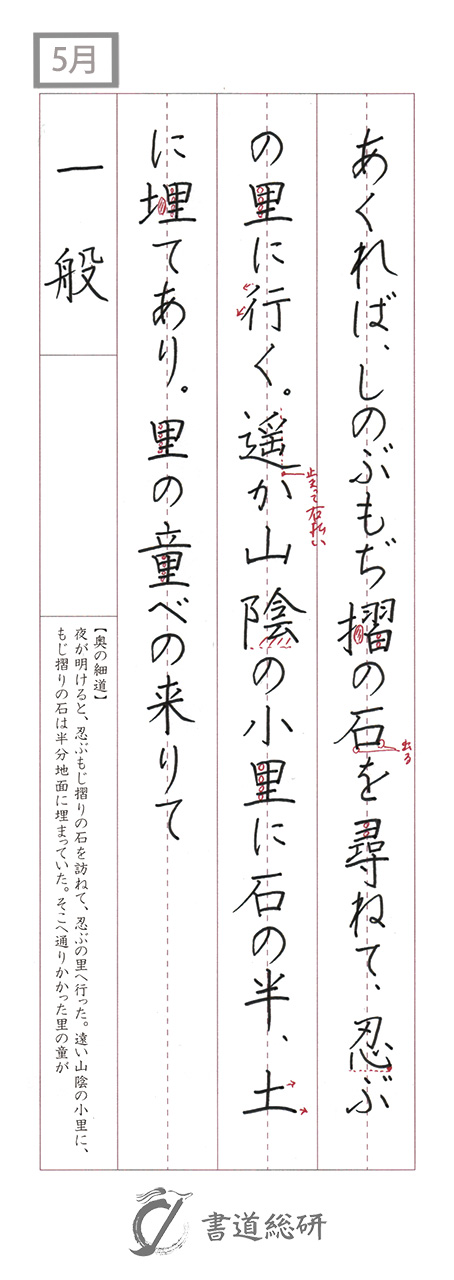 5月
あくれば、しのぶもぢ摺の石を尋ねて、忍ぶ
の里に行く。遥か山陰の小里に石の半、土
に埋てあり。里の童べの来りて
一般
出る
止まって右払い
【奥の細道】
夜が明けると、忍ぶもじ摺りの石を訪ねて、忍ぶの里へ行った。遠い山陰の小里に、
もじ摺りの石は半分地面に埋まっていた。そこへ通りかかった里の童が
書道総研